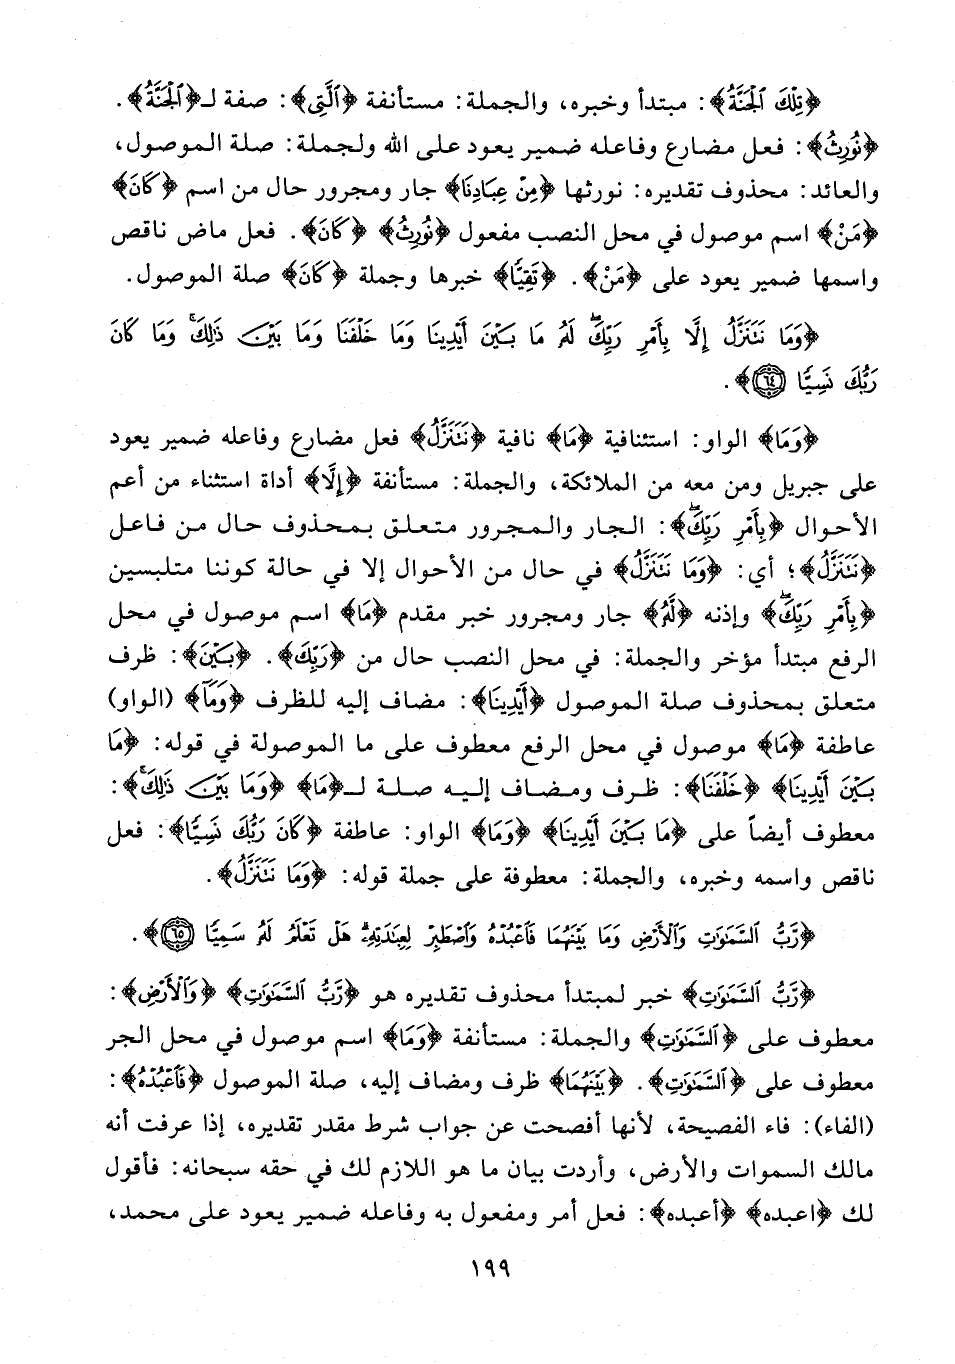 ﴿تِلْكَ ٱلْجَنَّةُ﴾: مبتدأ وخبره، والجملة: مستأنفة ﴿ٱلَّتِى﴾: صفة لـ﴿ٱلْجَنَّةُ﴾.
﴿نُورِثُ﴾: فعل مضارع وفاعله ضمير يعود على الله ولجملة: صلة الموصول،
والعائد: محذوف تقديره: نورثها ﴿مِنْ عِبَادِنَا﴾ جار ومجرور حال من اسم ﴿كَانَ﴾
﴿مَنْ﴾ اسم موصول في محل النصب مفعول ﴿نُورِثُ﴾ ﴿كَانَ﴾. فعل ماض ناقص
واسمها ضمير يعود على ﴿مَنْ﴾. ﴿تَقِيًّا﴾ خبرها وجملة ﴿كَانَ﴾ صلة الموصول.
﴿وَمَا نَتَنَزَّلُ إِلَّا بِأَمْرِ رَبِّكَ ۖ لَهُۥ مَا بَيْنَ أَيْدِينَا وَمَا خَلْفَنَا وَمَا بَيْنَ ذَٰلِكَ ۚ وَمَا كَانَ
رَبُّكَ نَسِيًّا ٦٤﴾.
﴿وَمَا﴾ الواو: استئنافية ﴿مَا﴾ نافية ﴿نَتَنَزَّلُ﴾ فعل مضارع وفاعله ضمير يعود
على جبريل ومن معه من الملائكة، والجملة: مستأنفة ﴿إِلَّا﴾ أداة استثناء من أعم
الأحوال ﴿بِأَمْرِ رَبِّكَ ۖ﴾: الجار والمجرور متعلق بمحذوف حال من فاعل
﴿نَتَنَزَّلُ﴾؛ أي: ﴿وَمَا نَتَنَزَّلُ﴾ في حال من الأحوال إلا في حالة كوننا متلبسين
﴿بِأَمْرِ رَبِّكَ ۖ﴾ وإذنه ﴿لَهُۥ﴾ جار ومجرور خبر مقدم ﴿مَا﴾ اسم موصول في محل
الرفع مبتدأ مؤخر والجملة: في محل النصب حال من ﴿رَبِّكَ﴾. ﴿بَيْنَ﴾: ظرف
متعلق بمحذوف صلة الموصول ﴿أَيْدِينَا﴾: مضاف إليه للظرف ﴿وَمَآ﴾ (الواو)
عاطفة ﴿مَا﴾ موصول في محل الرفع معطوف على ما الموصولة في قوله: ﴿مَا
بَيْنَ أَيْدِينَا﴾ ﴿خَلْفَنَا﴾: ظرف ومضاف إليه صلة لـ﴿مَا﴾ ﴿وَمَا بَيْنَ ذَٰلِكَ ۚ﴾:
معطوف أيضاً على ﴿مَا بَيْنَ أَيْدِينَا﴾ ﴿وَمَا﴾ الواو: عاطفة ﴿كَانَ رَبُّكَ نَسِيًّا﴾: فعل
ناقص واسمه وخبره، والجملة: معطوفة على جملة قوله: ﴿وَمَا نَتَنَزَّلُ﴾.
﴿رَّبُّ ٱلسَّمَٰوَٰتِ وَٱلْأَرْضِ وَمَا بَيْنَهُمَا فَٱعْبُدْهُ وَٱصْطَبِرْ لِعِبَٰدَتِهِۦ ۚ هَلْ تَعْلَمُ لَهُۥ سَمِيًّا ٦٥﴾.
﴿رَّبُّ ٱلسَّمَٰوَٰتِ﴾ خبر لمبتدأ محذوف تقديره هو ﴿رَّبُّ ٱلسَّمَٰوَٰتِ﴾ ﴿وَٱلْأَرْضِ﴾:
معطوف على ﴿ٱلسَّمَٰوَٰتِ﴾ والجملة: مستأنفة ﴿وَمَا﴾ اسم موصول في محل الجر
معطوف على ﴿ٱلسَّمَٰوَٰتِ﴾. ﴿بَيْنَهُمَا﴾ ظرف ومضاف إليه، صلة الموصول ﴿فَٱعْبُدْهُ﴾:
(الفاء): فاء الفصيحة، لأنها أفصحت عن جواب شرط مقدر تقديره، إذا عرفت أنه
مالك السموات والأرض، وأردت بيان ما هو اللازم لك في حقه سبحانه: فأقول
لك ﴿اعبده﴾ ﴿أعبده﴾: فعل أمر ومفعول به وفاعله ضمير يعود على محمد،
١٩٩